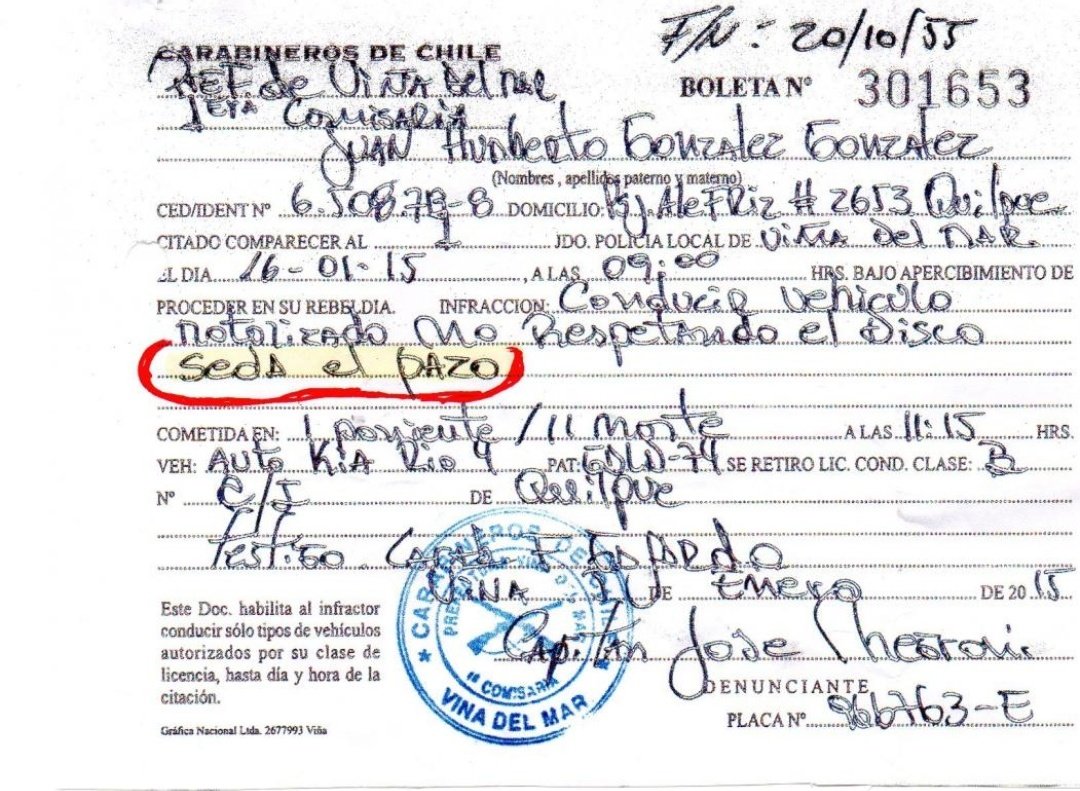 F/N: 20/10/55
CARABINEROS DE CHILE
PREF. de Viña Del Mar
BOLETA Nº 301653
1era Comisaria
Juan Humberto Gonzalez Gonzalez
(Nombres, apellidos paterno y materno)
CED/IDENT Nº 6.508.7 -8 DOMICILIO: Pj. Alefriz # 2653 Quilpue
CITADO COMPARECER AL 1 JDO. POLICIA LOCAL DE Viña del Mar.
EL DIA 16-01-15, A LAS 09:00 HRS. BAJO APERCIBIMIENTO DE
PROCEDER EN SU REBELDIA. INFRACCION: Conducir vehiculo
Motorizado No Respetando el Disco
seda el pazo
COMETIDA EN: 1 poniente / 11 Norte A LAS 11:15 HRS.
VEH: Auto Kia Rio 4 PAT: -74 SE RETIRO LIC. COND. CLASE: B
Nº C/I DE Quilpue
Testigo. Carab. F. Fajardo
Viña DE Enero DE 2015
Este Doc. habilita al infractor
conducir sólo tipos de vehículos
autorizados por su clase de
licencia, hasta día y hora de la
citación.
Capitan Jose
DENUNCIANTE
PLACA Nº 966763-E
Gráfica Nacional Ltda. 2677993 Viña
CARABINEROS DE CHILE
1ª COMISARIA
VIÑA DEL MAR